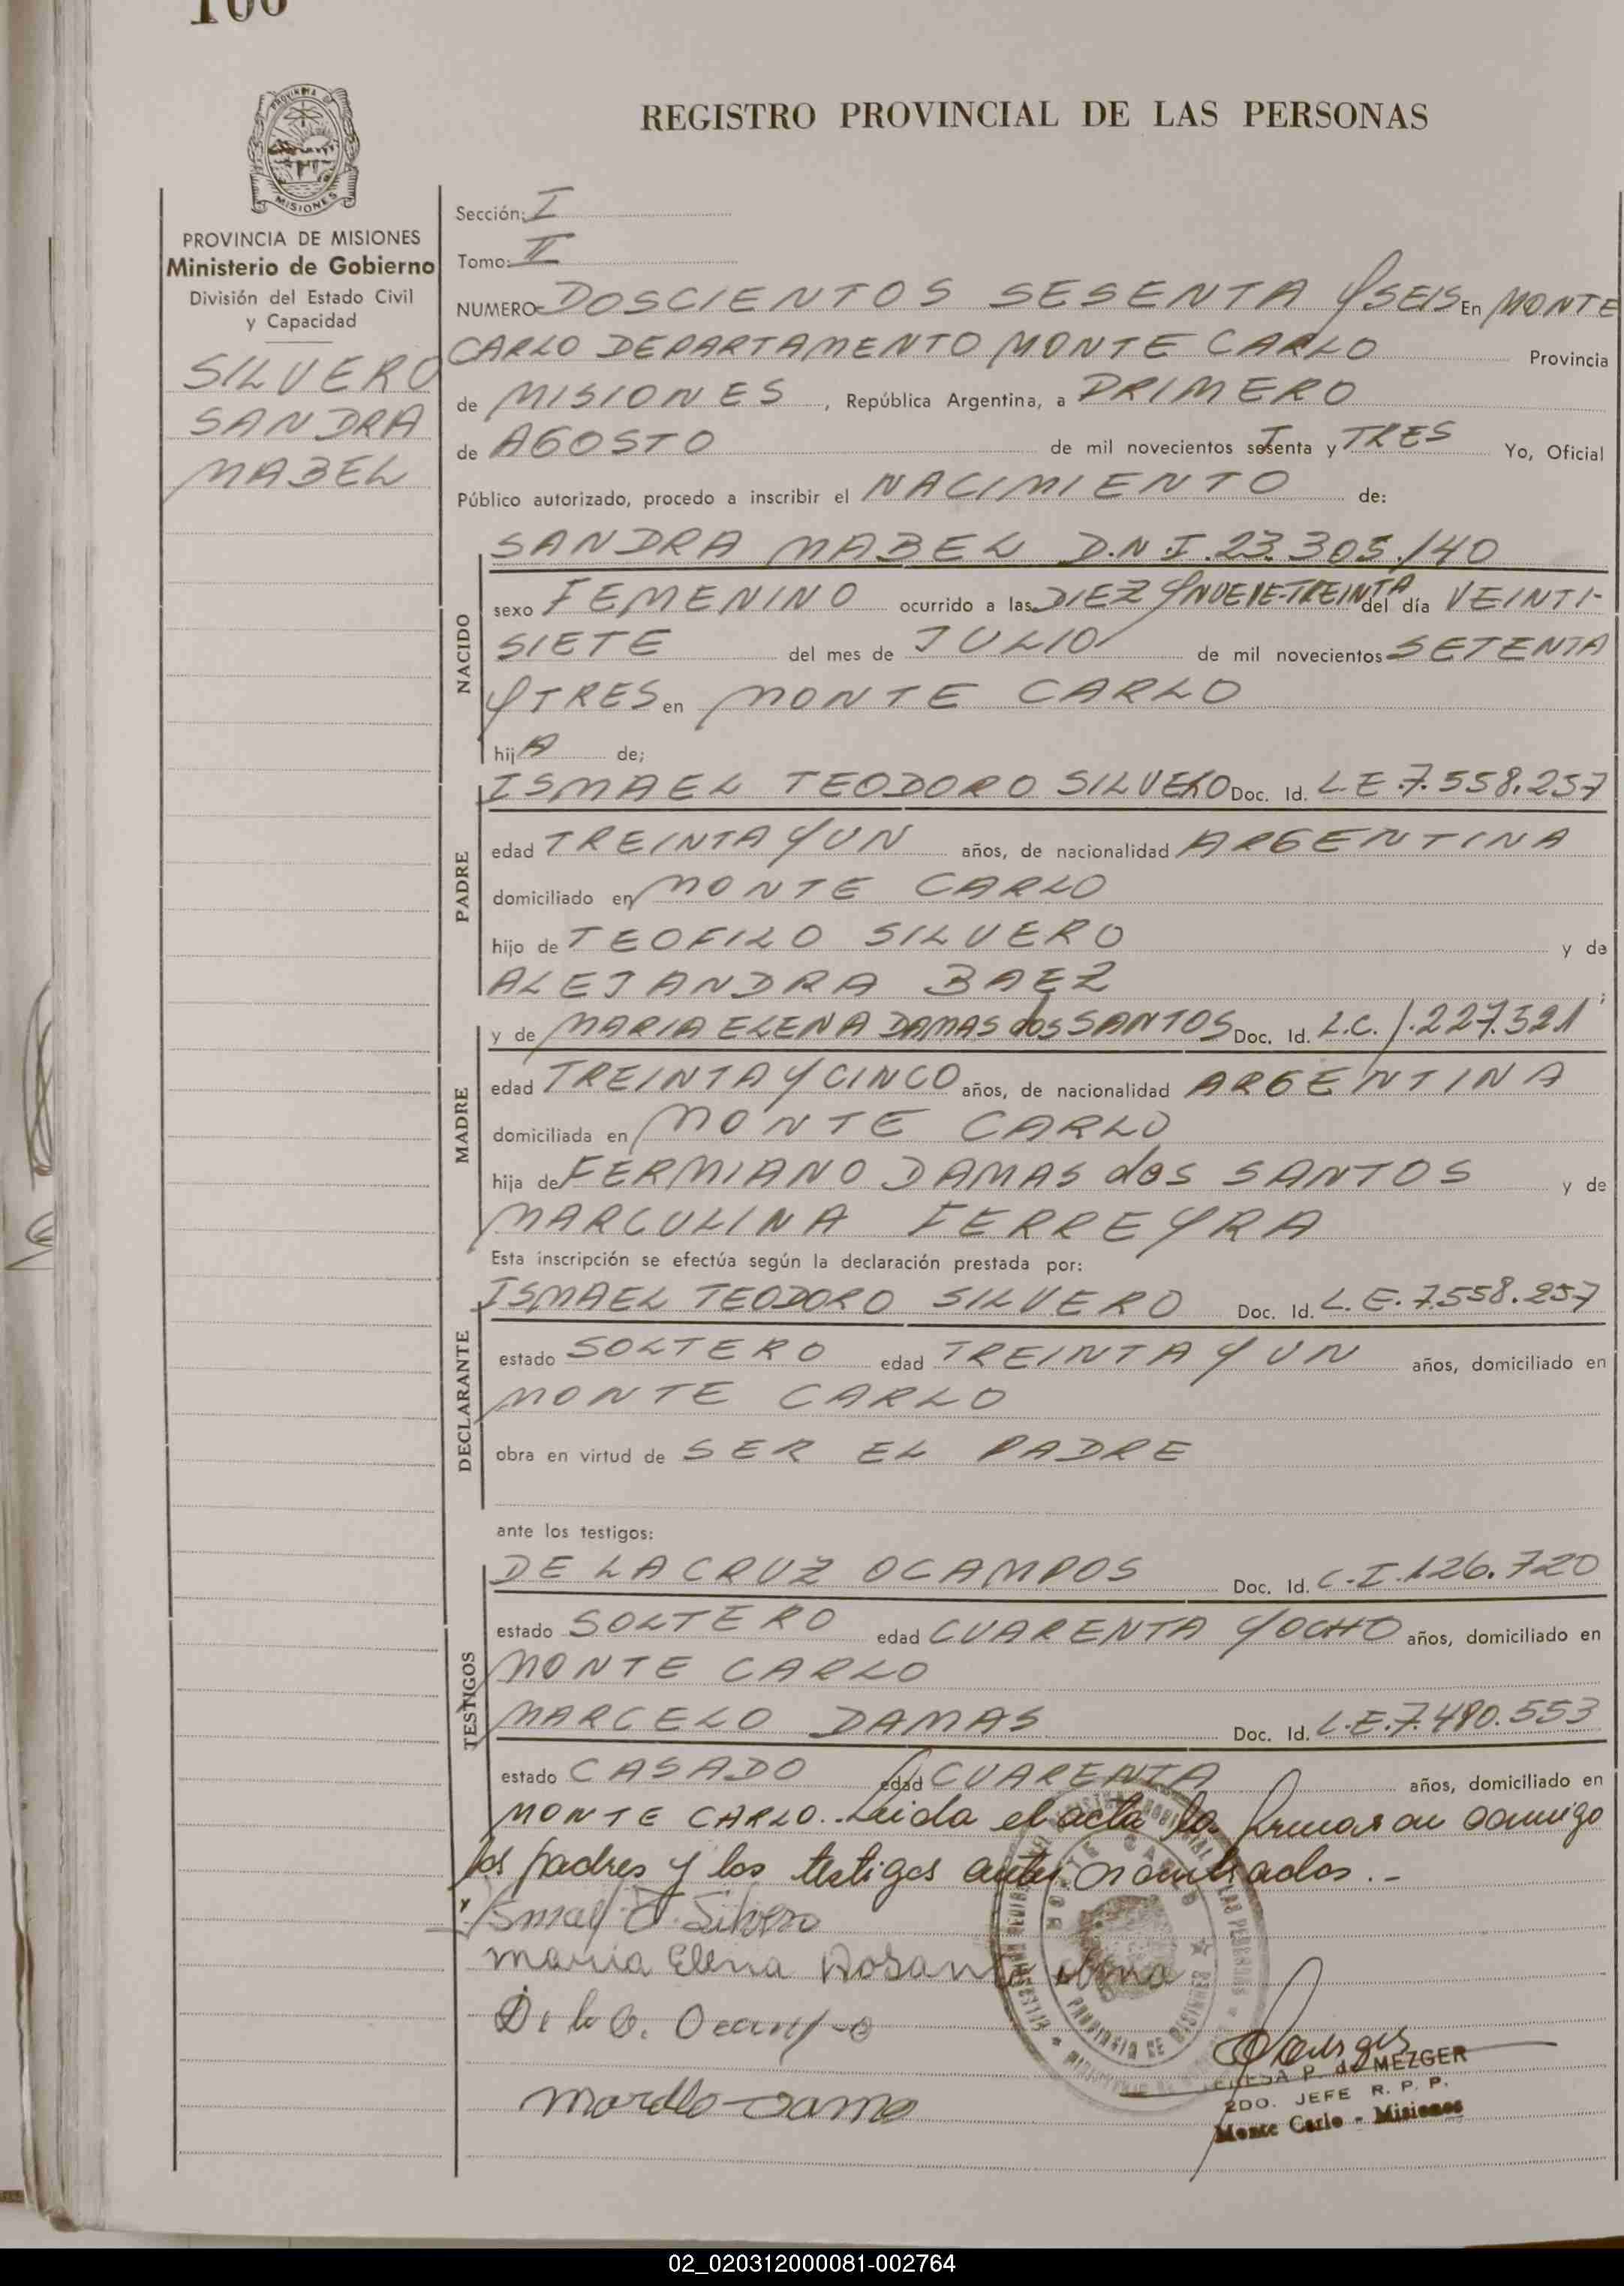 REGISTRO PROVINCIAL DE LAS PERSONAS
MISIONES
PROVINCIA DE MISIONES
Ministerio de Gobierno
División del Estado Civil
y Capacidad
SILVERO
SANDRA
MABEL
Sección: I
Tomo: II
NUMERO DOSCIENTOS SESENTA Y SEIS En MONTE
CARLO DEPARTAMENTO MONTE CARLO Provincia
de MISIONES, República Argentina, a PRIMERO
de AGOSTO de mil novecientos setenta y TRES Yo, Oficial
Público autorizado, procedo a inscribir el NACIMIENTO de:
NACIDO
SANDRA MABEL D.N.I. 23.305.140
sexo FEMENINO ocurrido a las DIEZ Y NUEVE-TREINTA del día VEINTI-
SIETE del mes de JULIO de mil novecientos SETENTA
Y TRES en MONTE CARLO
hijA de;
PADRE
ISMAEL TEODORO SILVERO Doc. Id. L.E. 7.558.257
edad TREINTA Y UN años, de nacionalidad ARGENTINA
domiciliado en MONTE CARLO
hijo de TEOFILO SILVERO y de
ALEJANDRA BAEZ ;
MADRE
y de MARIA ELENA DAMAS dos SANTOS Doc. Id. L.C. 1.227.321
edad TREINTA Y CINCO años, de nacionalidad ARGENTINA
domiciliada en MONTE CARLO
hija de FERMIANO DAMAS dos SANTOS y de
MARCULINA FERREYRA
Esta inscripción se efectúa según la declaración prestada por:
DECLARANTE
ISMAEL TEODORO SILVERO Doc. Id. L.E. 7.558.257
estado SOLTERO edad TREINTA Y UN años, domiciliado en
MONTE CARLO
obra en virtud de SER EL PADRE
ante los testigos:
TESTIGOS
DE LA CRUZ OCAMPOS Doc. Id. C.I. 126.720
estado SOLTERO edad CUARENTA Y OCHO años, domiciliado en
MONTE CARLO
MARCELO DAMAS Doc. Id. L.E. 7.480.553
estado CASADO edad CUARENTA años, domiciliado en
MONTE CARLO. Leida el acta la firmaron conmigo
los padres y los testigos antes nombrados.-
Ismael T. Silvero
maria Elena
D. la C. Ocampo
P. de MEZGER
2DO. JEFE R. P. P.
Monte Carlo - Misiones
02_020312000081-002764